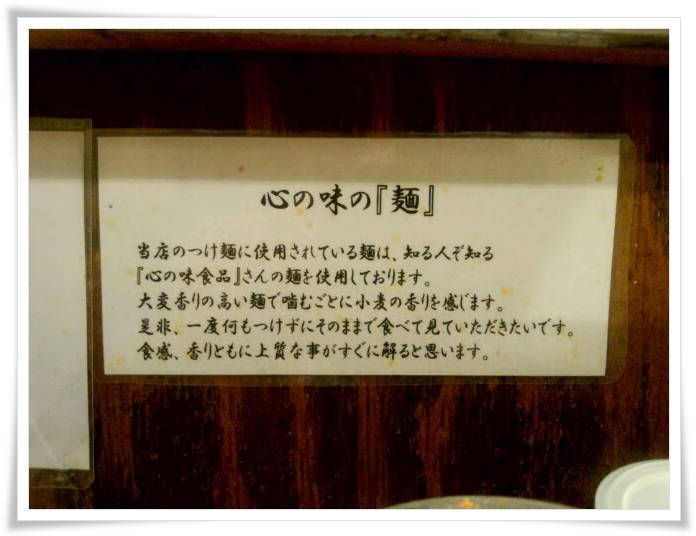 心の味の『麺』
当店のつけ麺に使用されている麺は、知る人ぞ知る
『心の味食品』さんの麺を使用しております。
大変香りの高い麺で噛むごとに小麦の香りを感じます。
是非、一度何もつけずにそのままで食べて見ていただきたいです。
食感、香りともに上質な事がすぐに解ると思います。